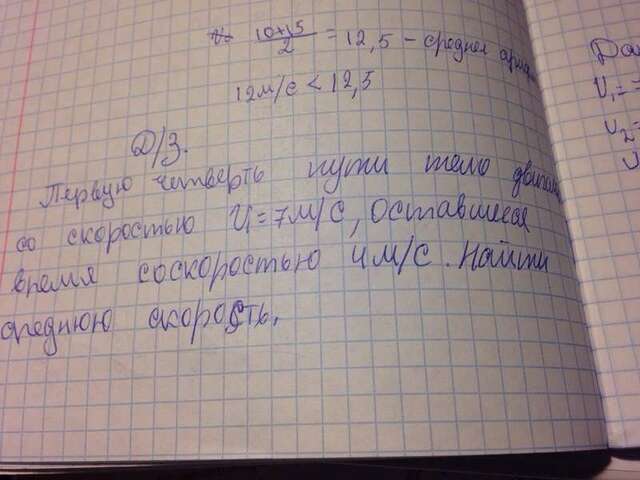 10+15
2
= 12,5 - среднее арифм
12 м/с < 12,5
Д/З.
Первую четверть пути тело двигал
со скоростью V₁=7м/с, оставшееся
время соскоростью 4м/с. Найти
среднюю скорость.
Дан
V₁=
V₂=
V